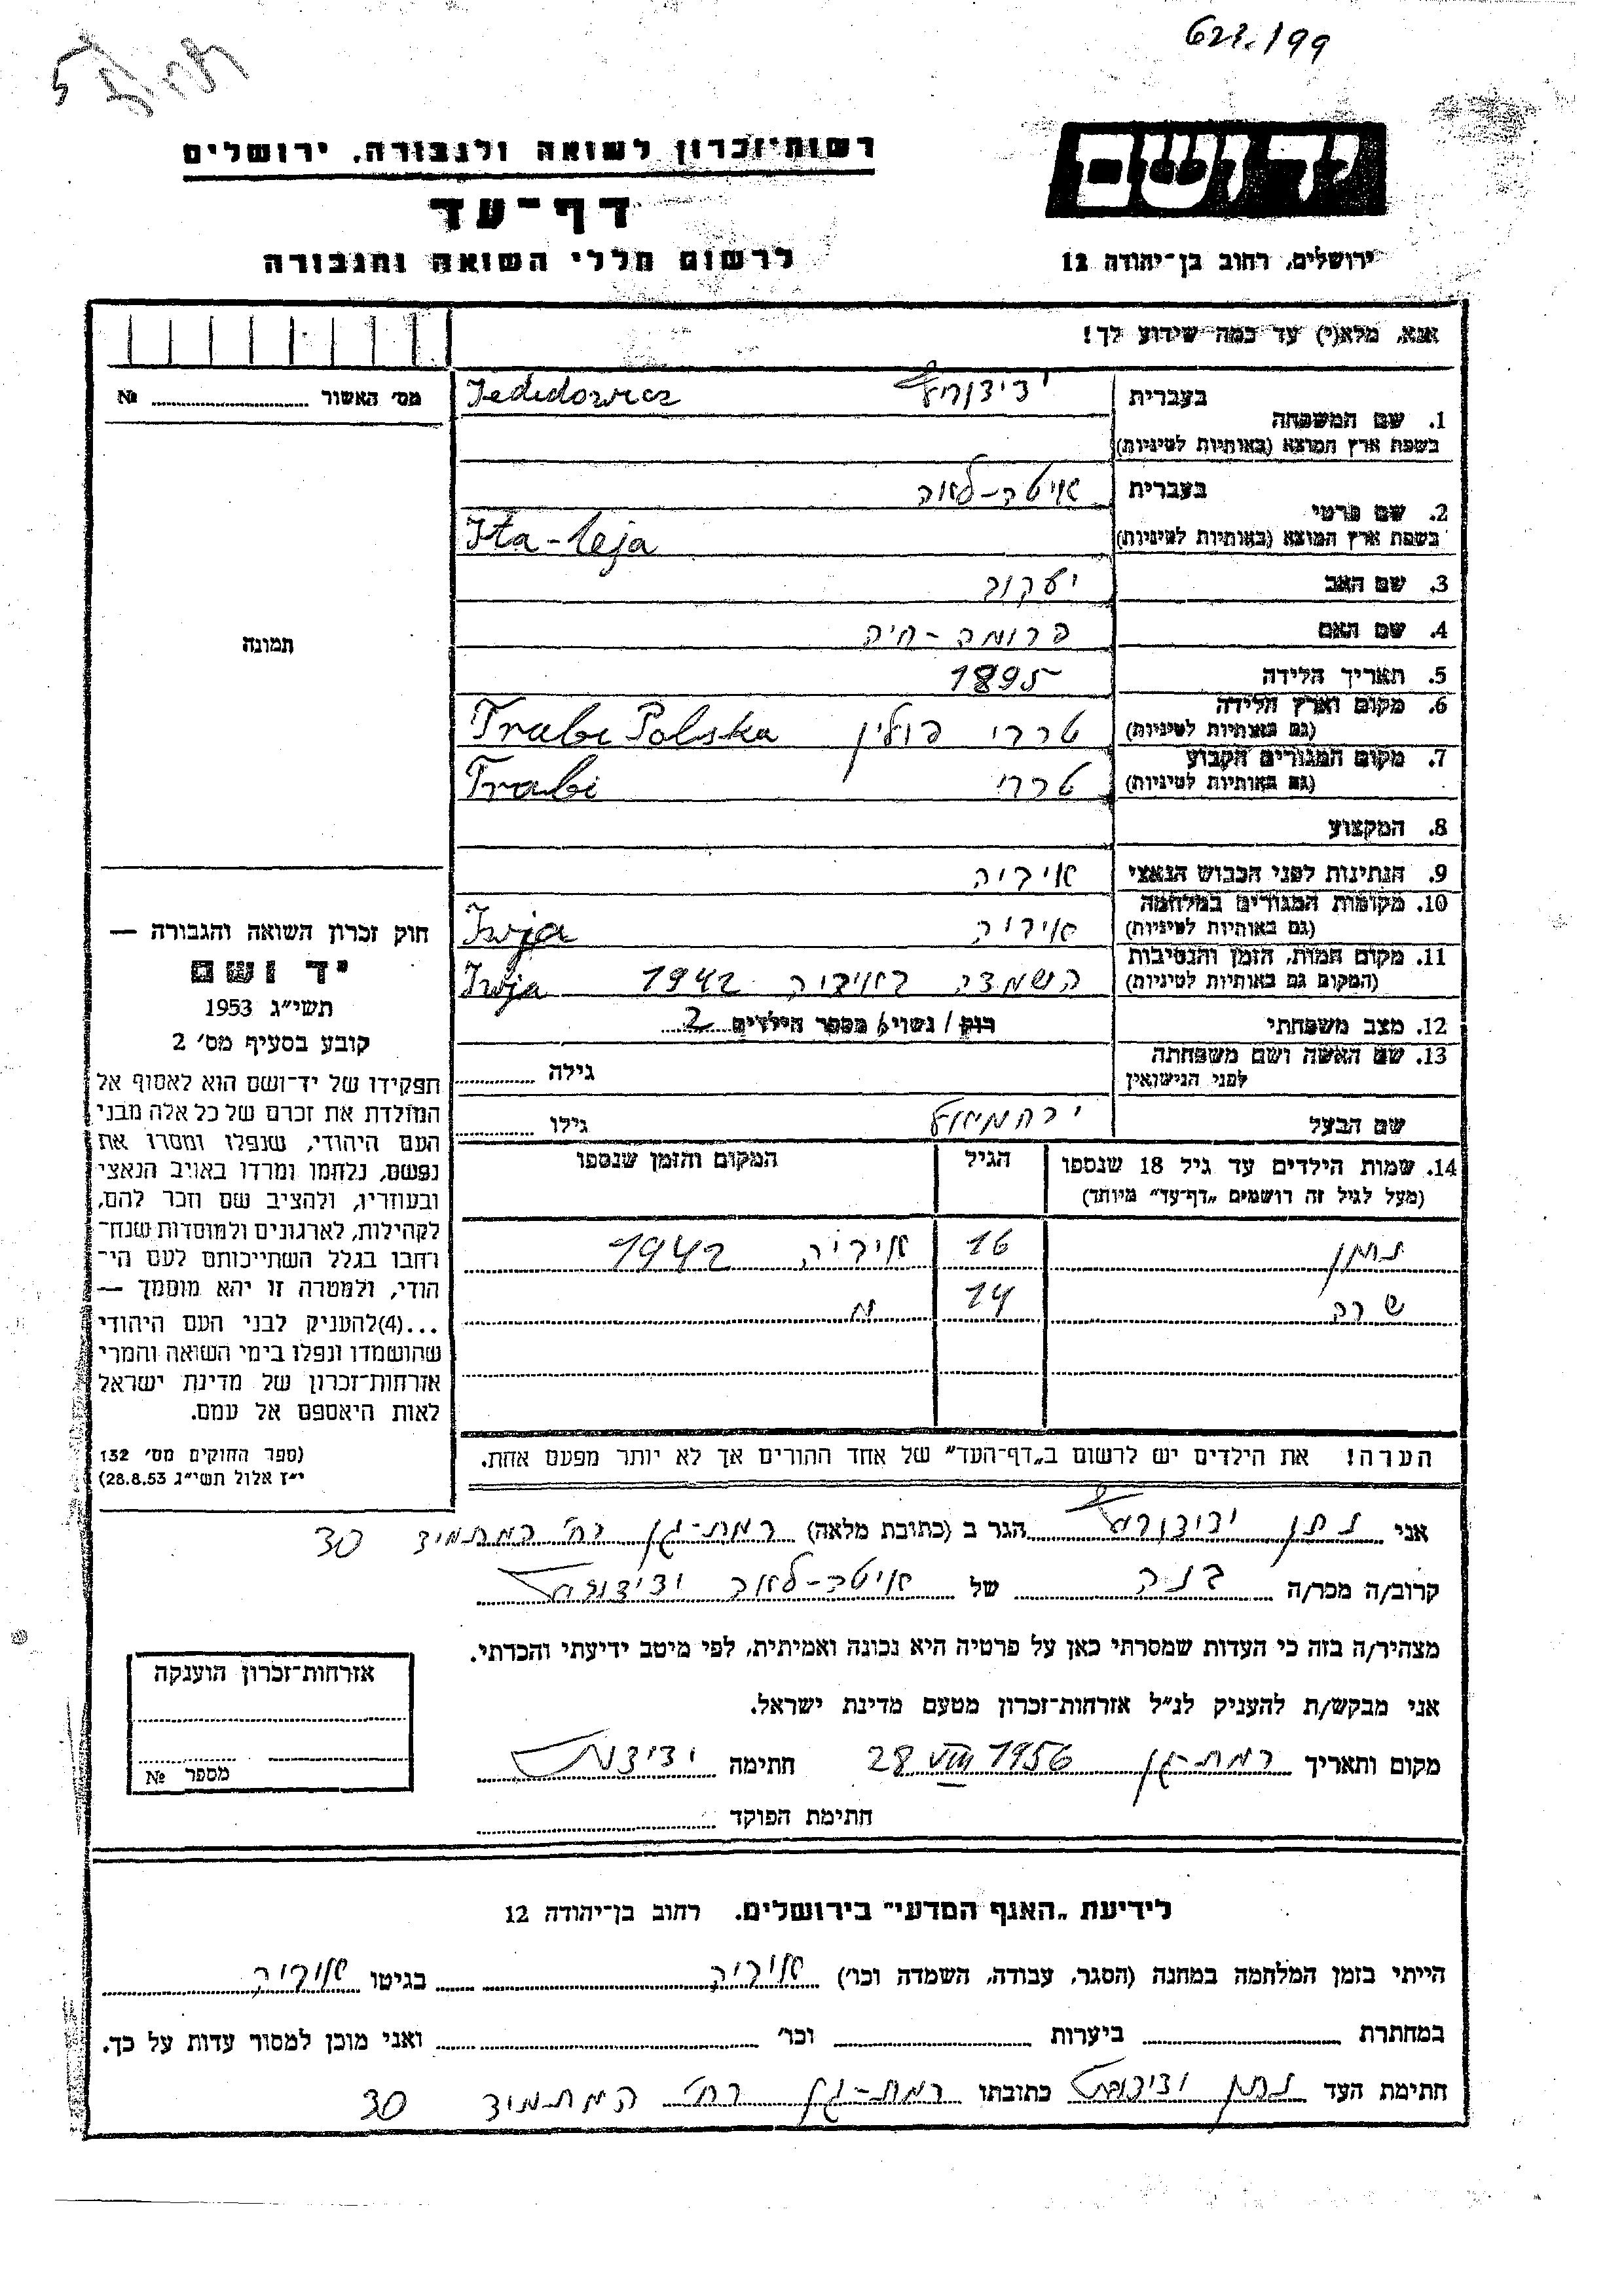 622.199
יד ושם
רשות־זכרון לשואה ולגבורה, ירושלים
דף־עד
לרשום חללי השואה והגבורה
ירושלים, רחוב בן־יהודה 12
אנא, מלא(י) עד כמה שידוע לך!
מס׳ האשור ........ №
1. שם המשפחה
בעברית
Jedidowicz
בשפת ארץ המוצא (באותיות לטיניות)
2. שם פרטי
בעברית איטה-לאה
בשפת ארץ המוצא (באותיות לטיניות) Ita-Leja
3. שם האב יעקוב
4. שם האם פרומה-חיה
5. תאריך הלידה 1895
6. מקום וארץ הלידה
(גם באותיות לטיניות) טרבי פולין Trabi Polska
7. מקום המגורים הקבוע
(גם באותיות לטיניות) טרבי Trabi
8. המקצוע
9. הנתינות לפני הכבוש הנאצי איביה
10. מקומות המגורים במלחמה
(גם באותיות לטיניות) איביה Iwja
11. מקום המות, הזמן והנסיבות
(המקום גם באותיות לטיניות) באיביה 1942 Iwja
12. מצב משפחתי רוק / נשוי / מספר הילדים 2
13. שם האשה ושם משפחתה
לפני הנישואין
גילה ........
שם הבעל ירחמיאל גילו ........
14. שמות הילדים עד גיל 18 שנספו הגיל המקום והזמן שנספו
(מעל לגיל זה רושמים „דף־עד” מיוחד)
16 איביה 1942
שרה 14 "
הערה! את הילדים יש לרשום ב„דף־העד” של אחד ההורים אך לא יותר מפעם אחת.
תמונה
חוק זכרון השואה והגבורה —
יד ושם
תשי״ג 1953
קובע בסעיף מס׳ 2
תפקידו של יד־ושם הוא לאסוף אל
המולדת את זכרם של כל אלה מבני
העם היהודי, שנפלו ומסרו את
נפשם, נלחמו ומרדו באויב הנאצי
ובעוזריו, ולהציב שם וזכר להם,
לקהילות, לארגונים ולמוסדות שנח־
רבו בגלל השתייכותם לעם הי־
הודי, ולמטרה זו יהא מוסמך —
...(4)להעניק לבני העם היהודי
שהושמדו ונפלו בימי השואה והמרי
אזרחות־זכרון של מדינת ישראל
לאות היאספם אל עמם.
(ספר החוקים מס׳ 132
י״ז אלול תשי״ג 28.8.53)
אני נתן הגר ב (כתובת מלאה) רמת-גן רח׳ המתמיד 30
קרוב/ה מכר/ה בנה של איטה-לאה
מצהיר/ה בזה כי העדות שמסרתי כאן על פרטיה היא נכונה ואמיתית, לפי מיטב ידיעתי והכרתי.
אני מבקש/ת להעניק לנ״ל אזרחות־זכרון מטעם מדינת ישראל.
מקום ותאריך רמת-גן 28 VIII 1956 חתימה
חתימת הפוקד ........
אזרחות־זכרון הוענקה
מספר №
לידיעת „האגף המדעי” בירושלים. רחוב בן־יהודה 12
הייתי בזמן המלחמה במחנה (הסגר, עבודה, השמדה וכו׳) איביה בגיטו איביה
במחתרת ........ ביערות ........ וכו׳ ........ ואני מוכן למסור עדות על כך.
חתימת העד נתן כתובתו רמת-גן רח׳ המתמיד 30